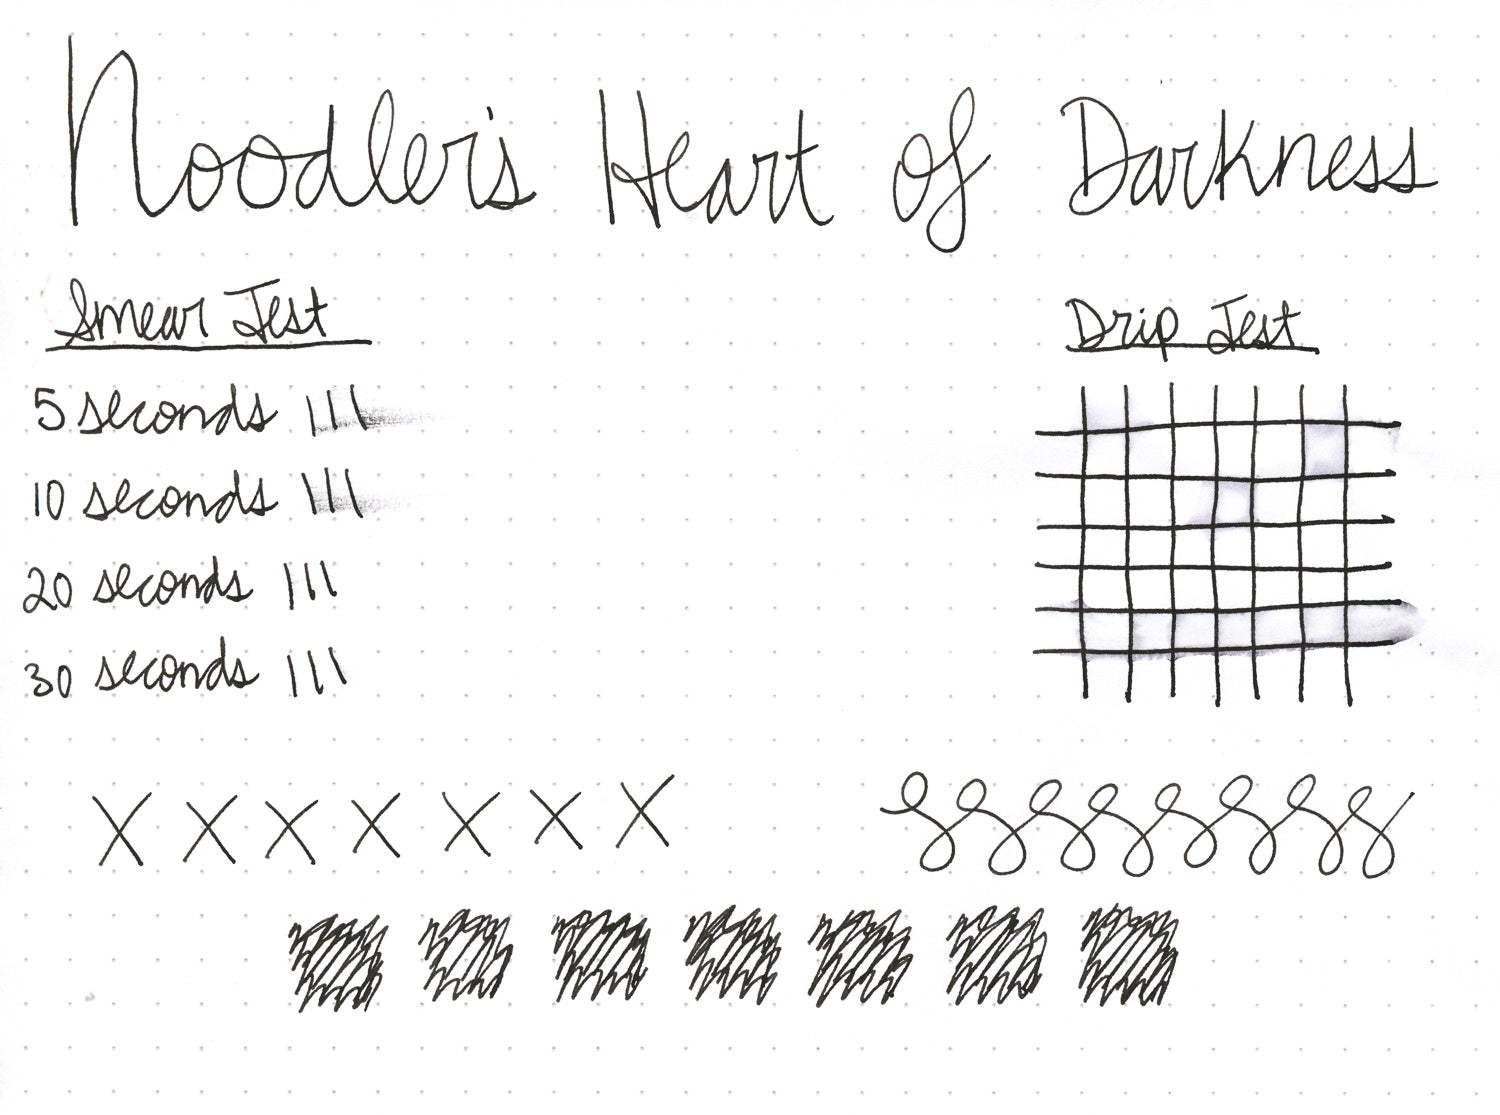 Noodler's Heart of Darkness
Smear Test
5 seconds
10 seconds
20 seconds
30 seconds
Drip Test